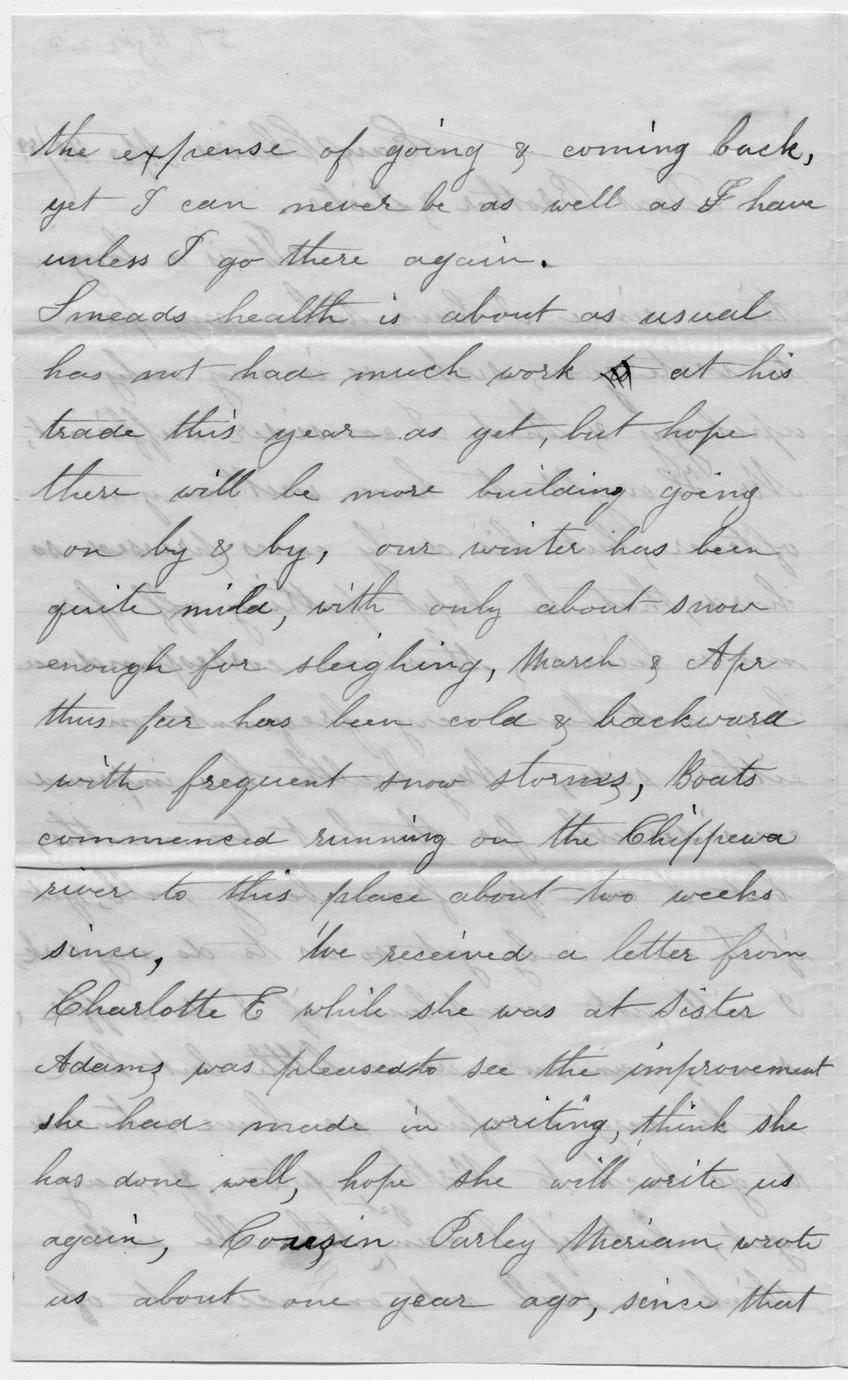 the expense of going & coming back,
yet I can never be as well as I have
unless I go there again.
Smeads health is about as usual
has not had much work at his
trade this year as yet, but hope
there will be more building going
on by & by, our winter has been
quite mild, with only about snow
enough for sleighing, March & Apr
thus far has been cold & backward
with frequent snow storms, Boats
commenced running on the Chippewa
river to this place about two weeks
since, We received a letter from
Charlotte E while she was at Sister
Adams was pleased to see the improvement
she had made in writing, think she
has done well, hope she will write us
again, Cousin Parley Meriam wrote
us about one year ago, since that